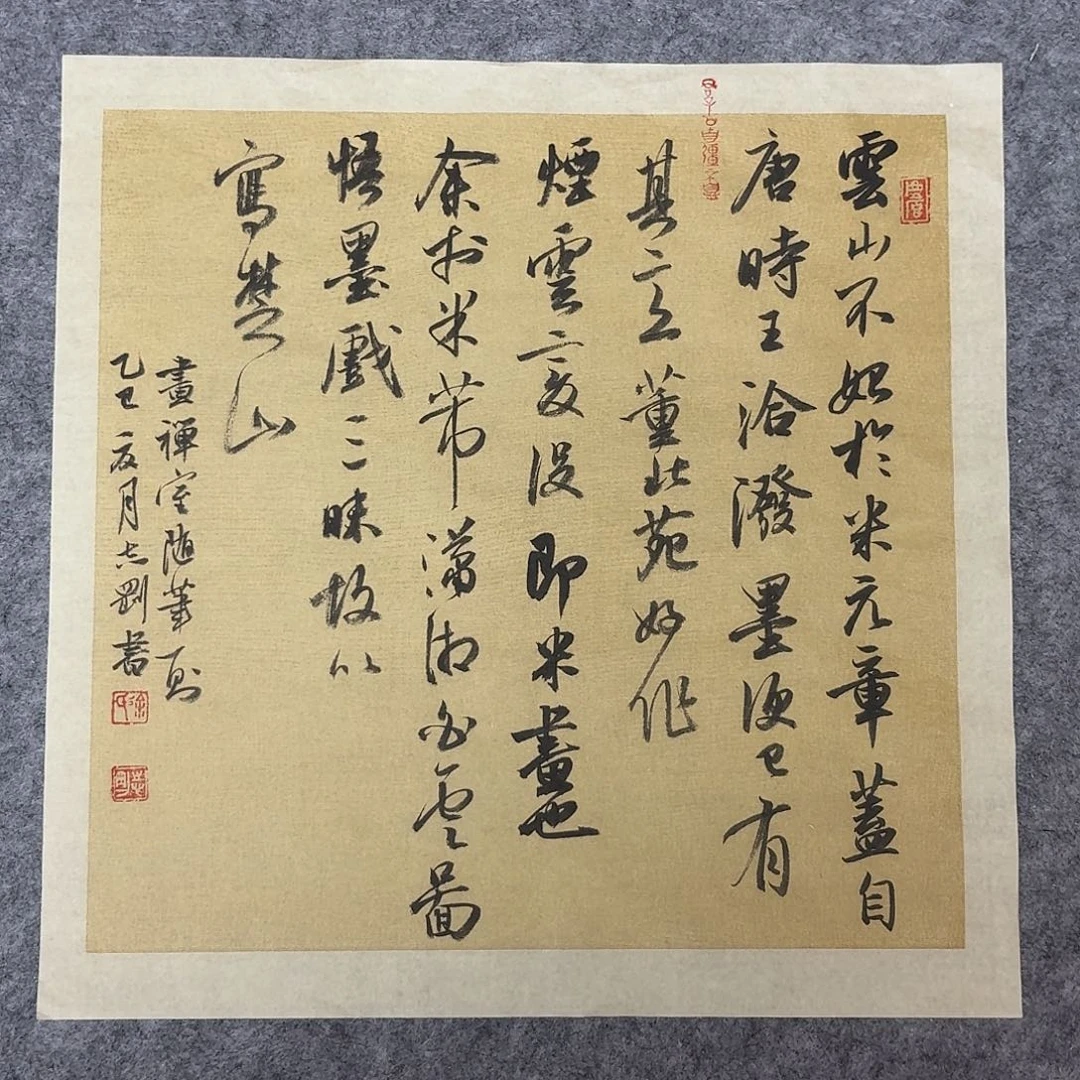 雲山不始於米元章蓋自
唐時王洽潑墨便已有
其意董北苑好作
煙雲變没即米畫也
余於米芾瀟湘白雲圖
悟墨戲三昧故以
寫楚山
畫禪室随筆一則
乙巳夏月志剛書
徐氏